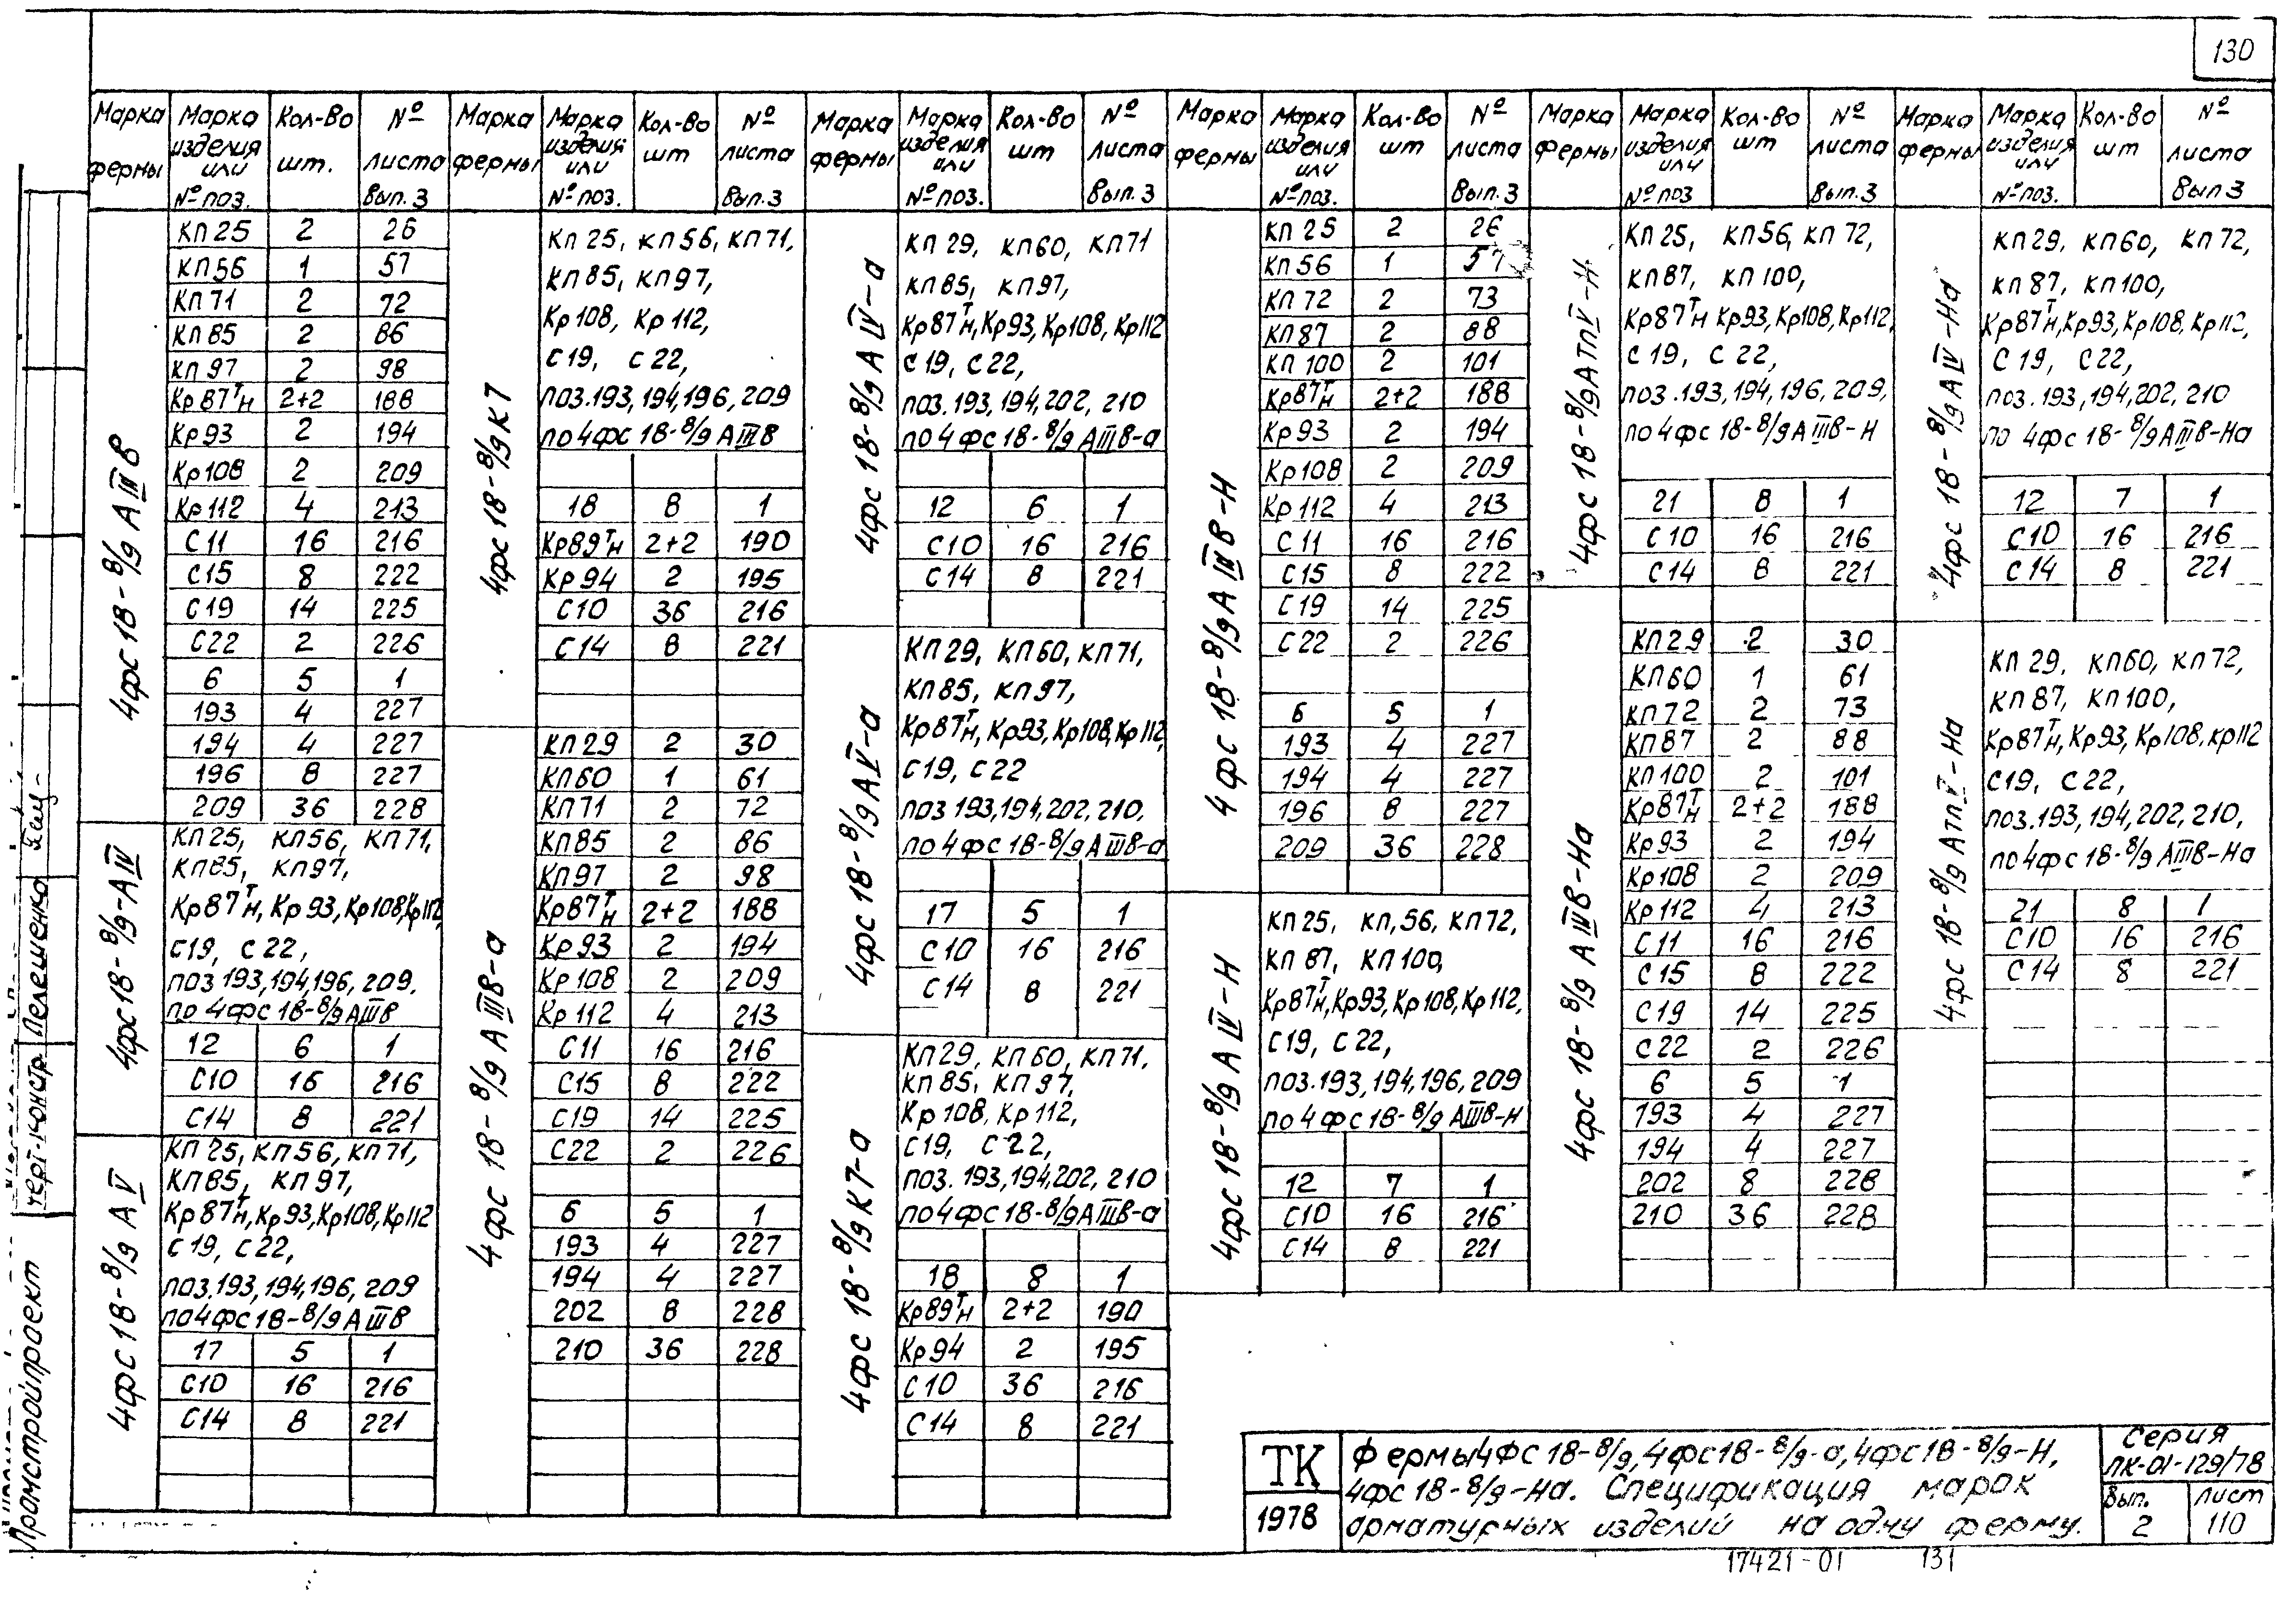 130
Марка фермы | Марка изделия или № поз. | Кол-во шт. | № листа Вып. 3
4фс 18-8/9 АIIIв
КП 25 2 26
КП 56 1 57
КП 71 2 72
КП 85 2 86
КП 97 2 98
Кр 87т/н 2+2 188
Кр 93 2 194
Кр 108 2 209
Кр 112 4 213
С 11 16 216
С15 8 222
С19 14 225
С22 2 226
6 5 1
193 4 227
194 4 227
196 8 227
209 36 228
4фс 18-8/9-АIV
КП25, КП56, КП71,
КП85, КП97,
Кр87т/н, Кр 93, Кр108, Кр112
С19, С 22,
поз 193, 194, 196, 209,
по 4фс 18-8/9 АIIIв
12 6 1
С10 16 216
С14 8 221
4фс 18-8/9 АV
КП 25, КП 56, КП 71,
КП85, КП 97,
Кр 87т/н, Кр 93, Кр108, Кр112
С 19, С 22,
поз. 193, 194, 196, 209
по 4фс 18-8/9 АIIIв
17 5 1
С10 16 216
С14 8 221
Марка фермы | Марка изделия или № поз. | Кол-во шт | № листа Вып. 3
4фс 18-8/9 К7
КП 25, КП 56, КП 71,
КП 85, КП 97,
Кр 108, Кр 112,
С 19, С 22,
поз. 193, 194, 196, 209
по 4фс 18-8/9 АIIIв
18 8 1
Кр89т/н 2+2 190
Кр 94 2 195
С10 36 216
С14 8 221
4фс 18-8/9 АIIIв-а
КП 29 2 30
КП60 1 61
КП71 2 72
КП85 2 86
КП97 2 98
Кр87т/н 2+2 188
Кр 93 2 194
Кр 108 2 209
Кр 112 4 213
С11 16 216
С15 8 222
С19 14 225
С22 2 226
6 5 1
193 4 227
194 4 227
202 8 228
210 36 228
Марка фермы | Марка изделия или № поз. | Кол-во шт | № листа Вып. 3
4фс 18-8/9 АIV-а
КП 29, КП60, КП71
КП85, КП97,
Кр87т/н, Кр93, Кр108, Кр112
С 19, С 22,
поз. 193, 194, 202, 210
по 4фс 18-8/9 АIIIв-а
12 6 1
С10 16 216
С14 8 221
4фс 18-8/9 АV-а
КП 29, КП60, КП71,
КП85, КП97,
Кр87т/н, Кр93, Кр108, Кр112,
С19, С 22
поз 193, 194, 202, 210,
по 4фс 18-8/9 АIIIв-а
17 5 1
С10 16 216
С14 8 221
4фс 18-8/9 К7-а
КП29, КП 60, КП71,
КП 85, КП 97,
Кр 108, Кр 112,
С19, С 22,
поз. 193, 194, 202, 210
по 4фс 18-8/9 АIIIв-а
18 8 1
Кр89т/н 2+2 190
Кр 94 2 195
С 10 36 216
С 14 8 221
Марка фермы | Марка изделия или № поз. | Кол-во шт | № листа Вып. 3
4фс 18-8/9 АIIIв-Н
КП 25 2 26
КП 56 1 57
КП 72 2 73
КП87 2 88
КП 100 2 101
Кр87т/н 2+2 188
Кр 93 2 194
Кр108 2 209
Кр 112 4 213
С 11 16 216
С15 8 222
С 19 14 225
С 22 2 226
6 5 1
193 4 227
194 4 227
196 8 227
209 36 228
4фс 18-8/9 АIV-Н
КП25, КП,56, КП72,
КП 87, КП100,
Кр87т/н, Кр93, Кр108, Кр112,
С19, С 22,
поз. 193, 194, 196, 209
по 4фс 18-8/9 АIIIв-Н
12 7 1
С10 16 216
С14 8 221
Марка фермы | Марка изделия или № поз | Кол-во шт | № листа Вып. 3
4фс 18-8/9 АтпV-Н
КП 25, КП56, КП 72,
КП87, КП 100,
Кр87т/н Кр93, Кр108, Кр112,
С 19, С 22,
поз. 193, 194, 196, 209,
по 4фс 18-8/9 АIIIв-Н
21 8 1
С 10 16 216
С14 8 221
4фс 18-8/9 АIIIв-На
КП29 2 30
КП60 1 61
КП72 2 73
КП87 2 88
КП100 2 101
Кр87т/н 2+2 188
Кр 93 2 194
Кр108 2 209
Кр 112 4 213
С 11 16 216
С 15 8 222
С19 14 225
С 22 2 226
6 5 1
193 4 227
194 4 227
202 8 228
210 36 228
Марка фермы | Марка изделия или № поз. | Кол-во шт | № листа Вып 3
4фс 18-8/9 АIV-На
КП 29, КП60, КП 72,
КП 87, КП100,
Кр87т/н, Кр93, Кр108, Кр112,
С 19, С 22,
поз. 193, 194, 202, 210
по 4фс 18-8/9 АIIIв-На
12 7 1
С10 16 216
С14 8 221
4фс 18-8/9 АтпV-На
КП 29, КП60, КП72,
КП 87, КП100,
Кр87т/н, Кр93, Кр108, Кр112
С19, С 22,
поз. 193, 194, 202, 210,
по 4фс 18-8/9 АIIIв-На
21 8 1
С10 16 216
С14 8 221
Промстройпроект
Черт-констр Пелешенко
ТК
1978
Фермы 4ФС 18-8/9, 4фс18-8/9-а, 4фс18-8/9-Н,
4фс 18-8/9-На. Спецификация марок
арматурных изделий на одну ферму.
Серия
ПК-01-129/78
Вып. 2
Лист 110
17421-01 131